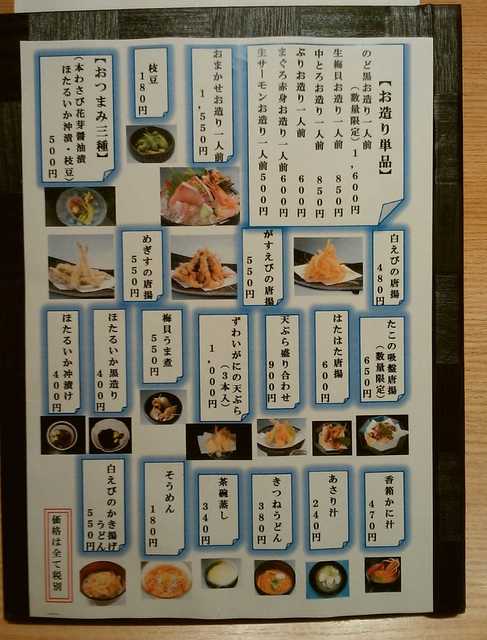 【お造り単品】
のど黒お造り一人前
(数量限定)1,600円
生梅貝お造り一人前 850円
中とろお造り一人前 850円
ぶりお造り一人前 600円
まぐろ赤身お造り一人前600円
生サーモンお造り一人前500円
おまかせお造り一人前
1,550円
枝豆
180円
【おつまみ三種】
(本わさび花芽醤油漬
ほたるいか沖漬・枝豆)
500円
白えびの唐揚
480円
がすえびの唐揚
550円
めぎすの唐揚
550円
たこの吸盤唐揚
(数量限定)
650円
はたはた唐揚
600円
天ぷら盛り合わせ
900円
ずわいがにの天ぷら
(3本入)
1,000円
梅貝うま煮
550円
ほたるいか黒造り
400円
ほたるいか沖漬け
400円
香箱かに汁
470円
あさり汁
240円
きつねうどん
380円
茶碗蒸し
340円
そうめん
180円
白えびのかき揚げ
うどん
550円
価格は全て税別